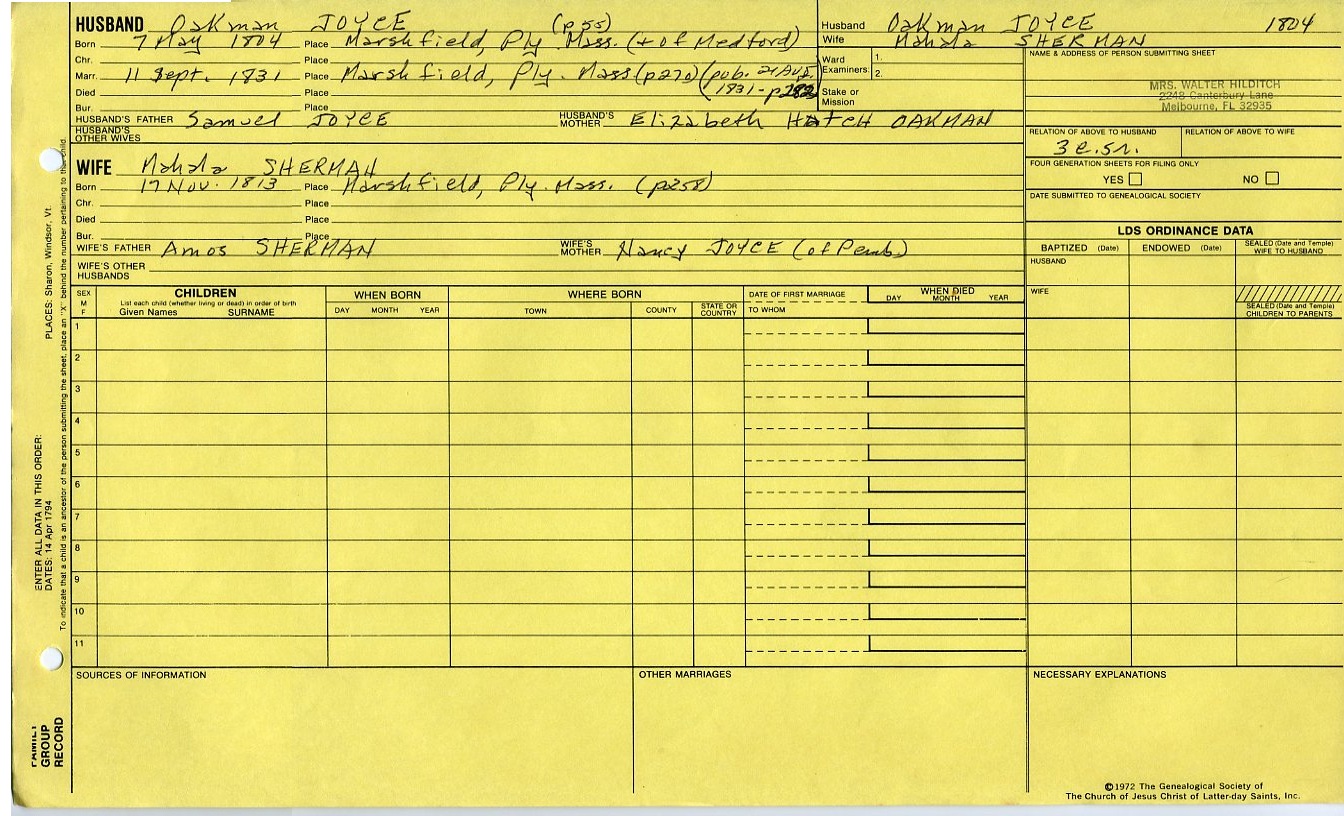 HUSBAND Oakman JOYCE (p 55)
Born 7 May 1804 Place Marshfield, Ply. Mass. (+ of Medford)
Chr. Place
Marr. 11 Sept. 1831 Place Marshfield, Ply. Mass (p270) (pub. 21 Aug. 1831 - p282)
Died Place
Bur. Place
HUSBAND'S FATHER Samuel JOYCE HUSBAND'S MOTHER Elizabeth Hatch OAKMAN
HUSBAND'S OTHER WIVES
Husband Oakman JOYCE 1804
Wife Mahala SHERMAN
Ward Examiners: 1.
2.
Stake or Mission
NAME & ADDRESS OF PERSON SUBMITTING SHEET
MRS. WALTER HILDITCH
2248 Canterbury Lane
Melbourne, FL 32935
RELATION OF ABOVE TO HUSBAND RELATION OF ABOVE TO WIFE
3 c. 5r.
FOUR GENERATION SHEETS FOR FILING ONLY
YES NO
DATE SUBMITTED TO GENEALOGICAL SOCIETY
WIFE Mahala SHERMAN
Born 17 Nov. 1813 Place Marshfield, Ply. Mass. (p258)
Chr. Place
Died Place
Bur. Place
WIFE'S FATHER Amos SHERMAN WIFE'S MOTHER Nancy JOYCE (of Pemb.)
WIFE'S OTHER HUSBANDS
LDS ORDINANCE DATA
BAPTIZED (Date) ENDOWED (Date) SEALED (Date and Temple) WIFE TO HUSBAND
HUSBAND
WIFE
SEALED (Date and Temple) CHILDREN TO PARENTS
SEX M F
CHILDREN
List each child (whether living or dead) in order of birth
Given Names SURNAME
WHEN BORN
DAY MONTH YEAR
WHERE BORN
TOWN COUNTY STATE OR COUNTRY
DATE OF FIRST MARRIAGE
TO WHOM
WHEN DIED
DAY MONTH YEAR
1
2
3
4
5
6
7
8
9
10
11
SOURCES OF INFORMATION OTHER MARRIAGES NECESSARY EXPLANATIONS
©1972 The Genealogical Society of
The Church of Jesus Christ of Latter-day Saints, Inc.
FAMILY GROUP RECORD
ENTER ALL DATA IN THIS ORDER:
DATES: 14 Apr 1794
PLACES: Sharon, Windsor, Vt.
To indicate that a child is an ancestor of the person submitting the sheet, place an "X" behind the number pertaining to that child.